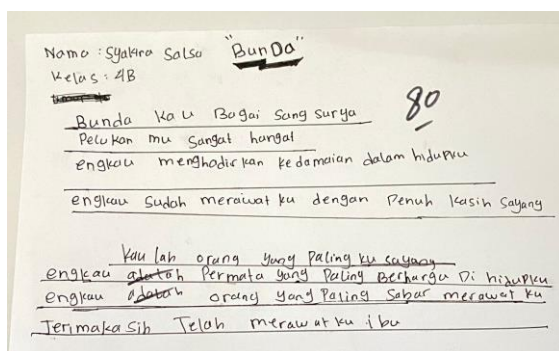 Nama : Syakira Salsa "BunDa"
Kelas : 4B
80
Bunda kau Bagai Sang Surya
Pelukan mu Sangat hangat
engkau menghadirkan kedamaian dalam hidupku
engkau Sudah merawat ku dengan Penuh Kasih Sayang
kau lah orang yang paling ku sayang
engkau adalah Permata yang Paling Berharga Di hidupku
engkau adalah orang yang Paling Sabar merawat ku
Terimakasih Telah merawatku ibu